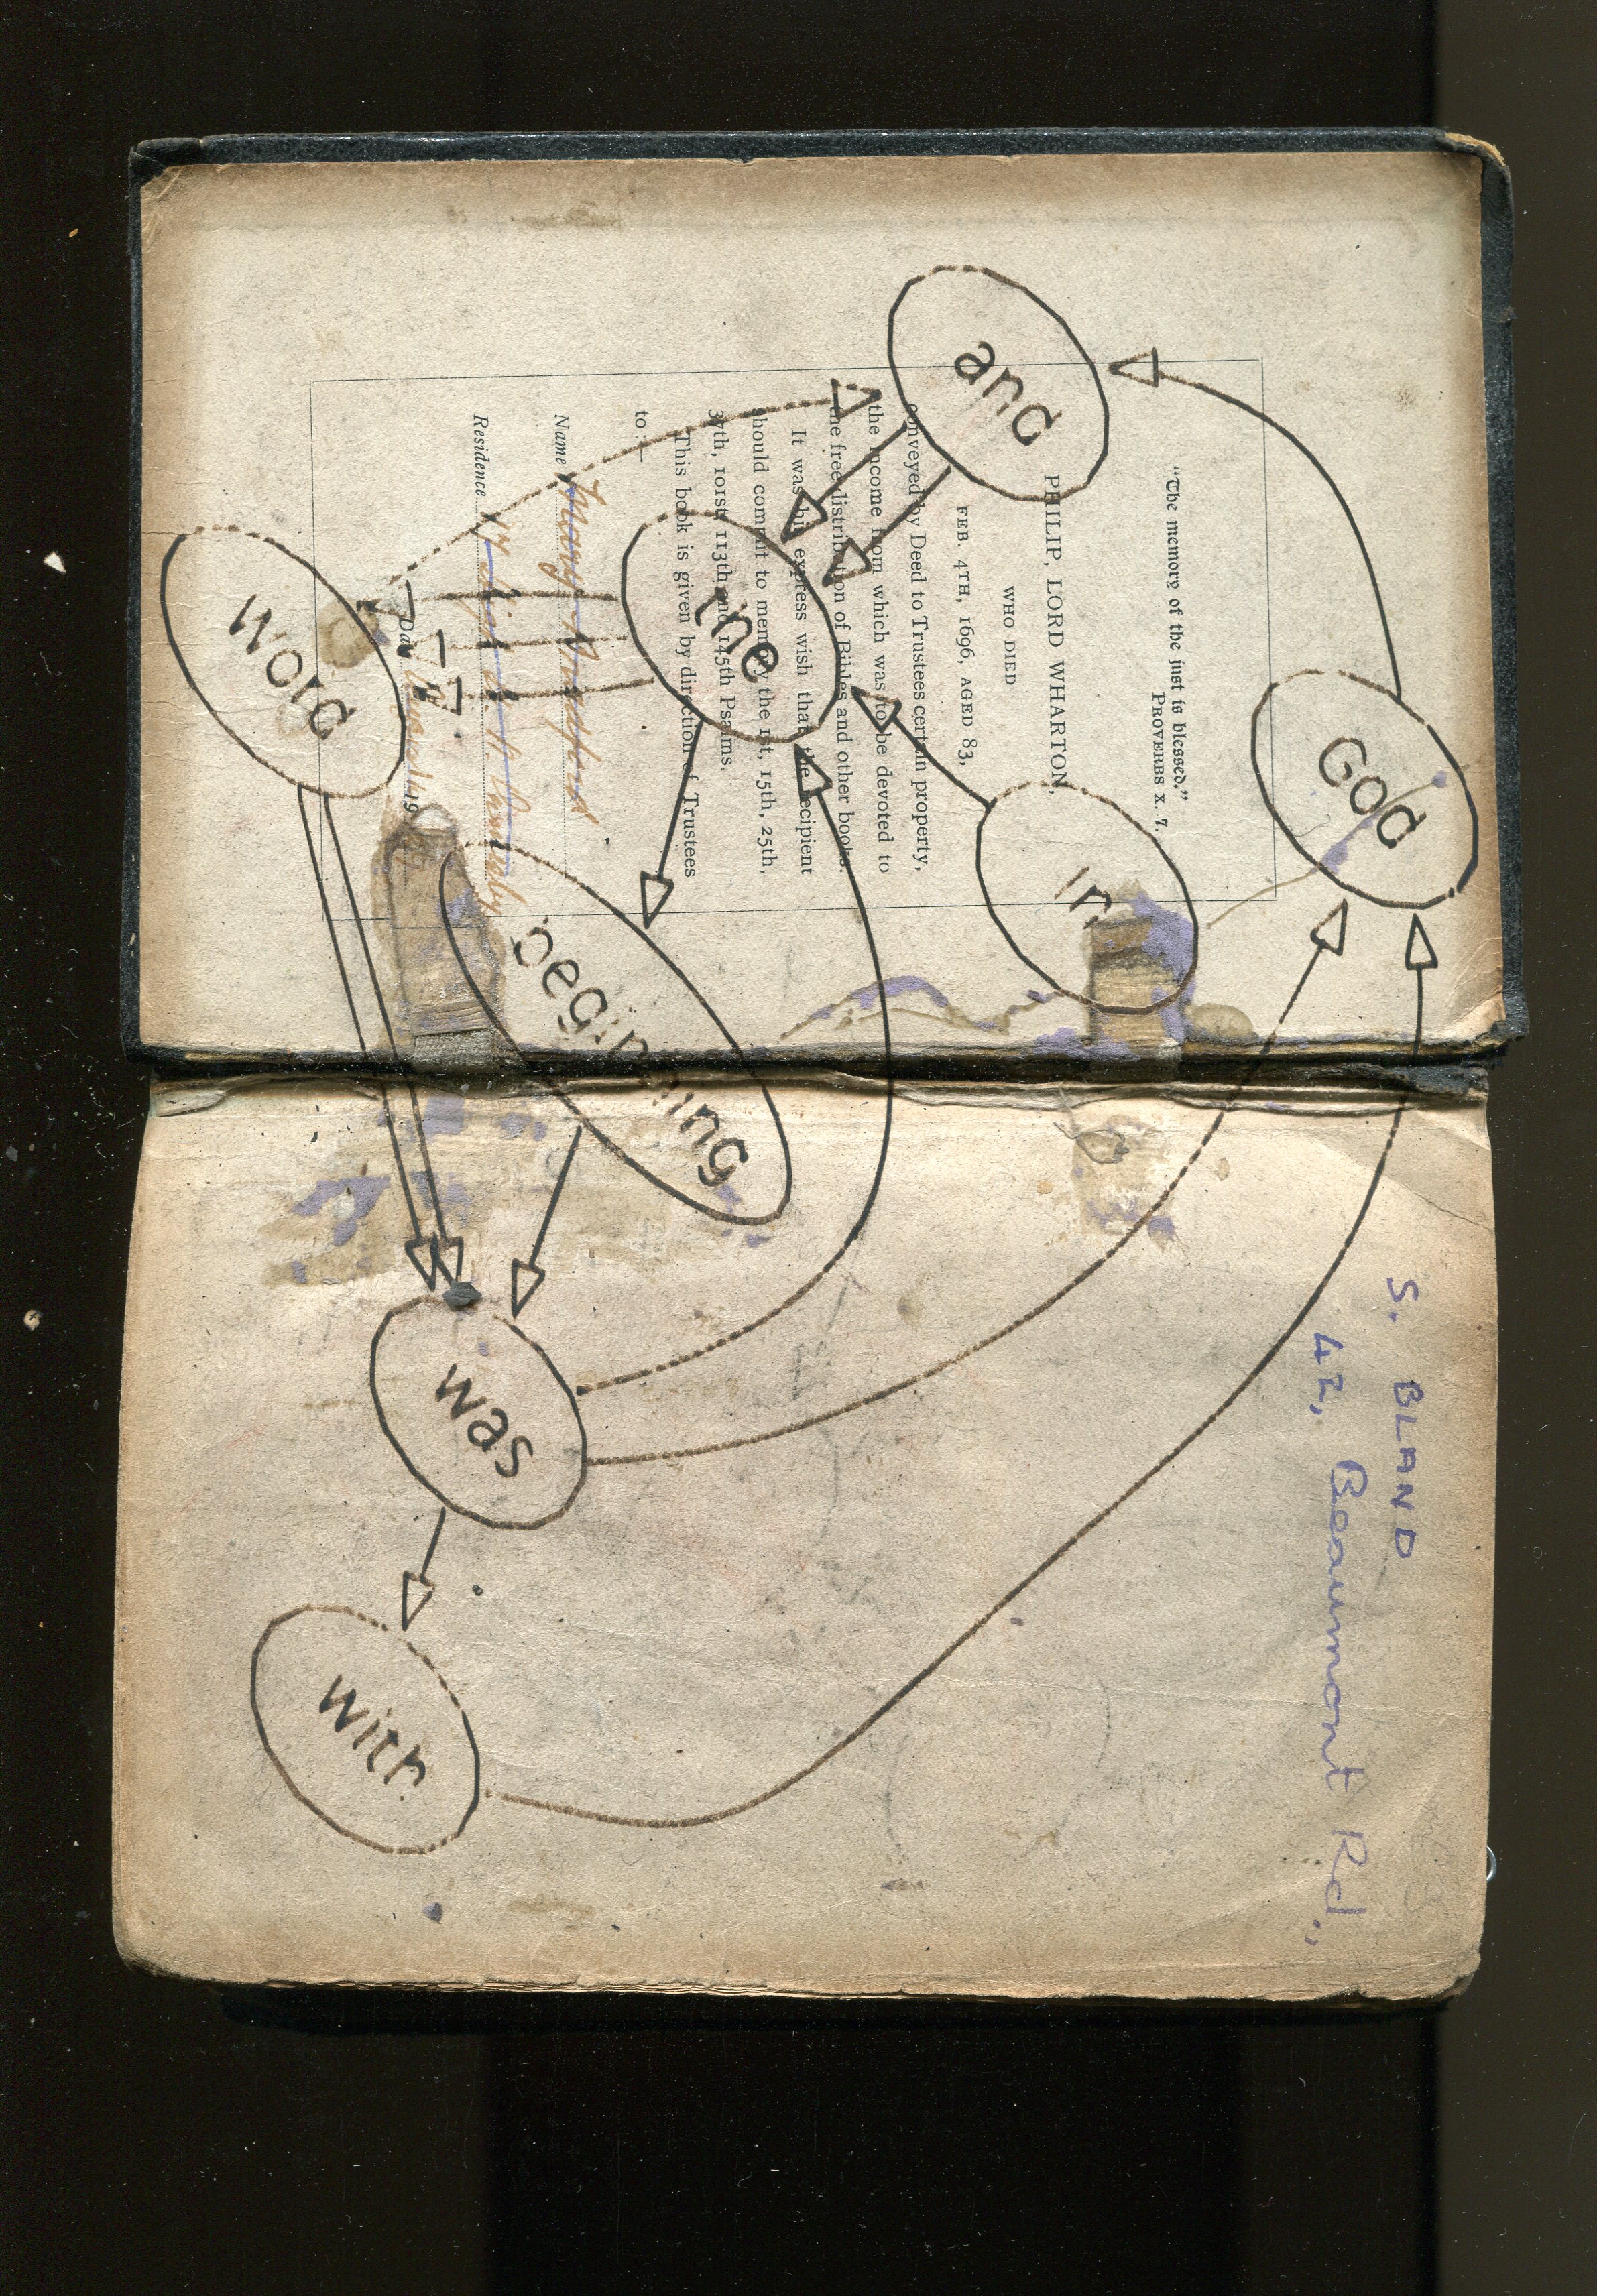 "The memory of the just is blessed."
PROVERBS X. 7.
PHILIP, LORD WHARTON,
WHO DIED
FEB. 4TH, 1696, AGED 83,
conveyed by Deed to Trustees certain property,
the income from which was to be devoted to
the free distribution of Bibles and other books.
It was his express wish that the recipient
should commit to memory the 1st, 15th, 25th,
37th, 101st, 113th and 145th Psalms.
This book is given by direction of Trustees
to:—
Name
Residence 17
Date 19
and
the
word
God
in
beginning
was
with
S. BLAND
42, Beaumont Rd.,